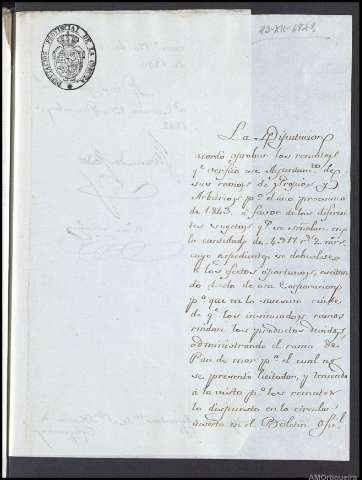 DIPUTACION PROVINCIAL DE LA CORUÑA
23-XII-1842
La Diputacion
acordó aprobar los remates
qe verificó ese Ayuntamto de
sus ramos de Propios y
Arbitrios pa el año procsimo
de 1843 á favor de los diferen
tes sugetos qe se señalan en
la cantidad de
cuyo espediente se debuelve
á los efectos oportunos, escitando
el celo de esa Corporacion
pa que en lo sucesivo cuide
de qe los insinuados ramos
rindan los productos devidos,
administrando el ramo de
Pan de mar pa el cual no
se presentó licitador, y teniendo
á la vista pa los remates
lo dispuesto en la circular
inserta en el Boletin Ofel
AMOrtigueira